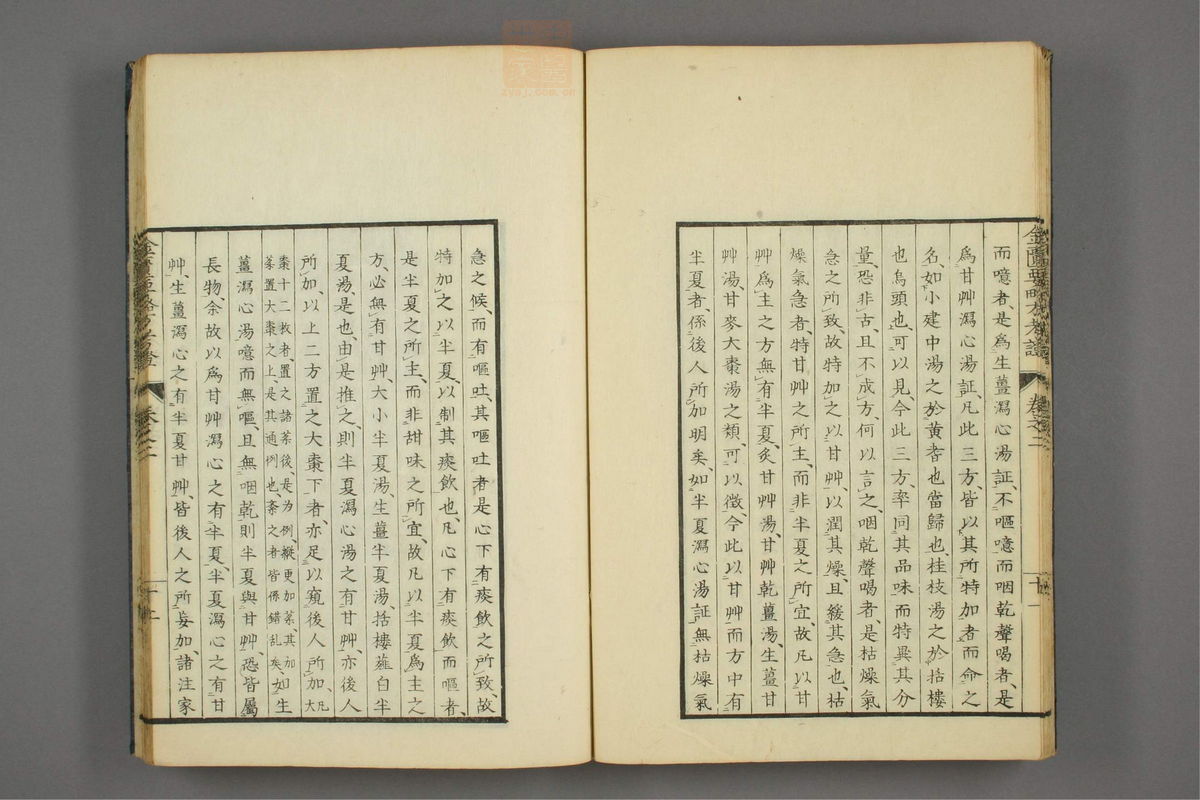 金匱要略方析證 卷之二
而噫者、是爲生薑瀉心湯証、不嘔噫而咽乾聲喝者、是
爲甘艸瀉心湯証、凡此三方、皆以其所特加者而命之
名、如小建中湯之於黄耆也當歸也、桂枝湯之於括樓
也烏頭也、可以見、今此三方、率同其品味而特異其分
量、恐非古、且不成方、何以言之、咽乾聲喝者、是枯燥氣
急之所致、故特加之以甘艸、以潤其燥、且緩其急也、枯
燥氣急者、特甘艸之所主、而非半夏之所宜、故凡以甘
艸爲主之方、無有半夏、炙甘艸湯、甘艸乾薑湯、生薑甘
艸湯、甘麥大棗湯之類、可以徵、今此以甘艸而方中有
半夏者、係後人所加明矣、如半夏瀉心湯証、無枯燥氣
急之候、而有嘔吐、其嘔吐者、是心下有痰飲之所致、故
特加之以半夏、以制其痰飲也、凡心下有痰飲而嘔者、
是半夏之所主、而非甜味之所宜、故凡以半夏爲主之
方、必無有甘艸、大小半夏湯、生薑半夏湯、括樓薤白半
夏湯是也、由是推之、則半夏瀉心湯之有甘艸、亦後人
所加、以上二方置之大棗下者、亦足以窺後人所加、凡大
棗十二枚者、置之諸菜後、是为例、縱更加菜、其加
菜置大棗之上、是其通例也、紊之者皆係錯乱矣、如生
薑瀉心湯、噫而無嘔、且無咽乾、則半夏與甘艸、恐皆屬
長物、余故以爲甘艸瀉心之有半夏、半夏瀉心之有甘
艸、生薑瀉心之有半夏甘艸、皆後人之所妄加、諸注家
卷之二